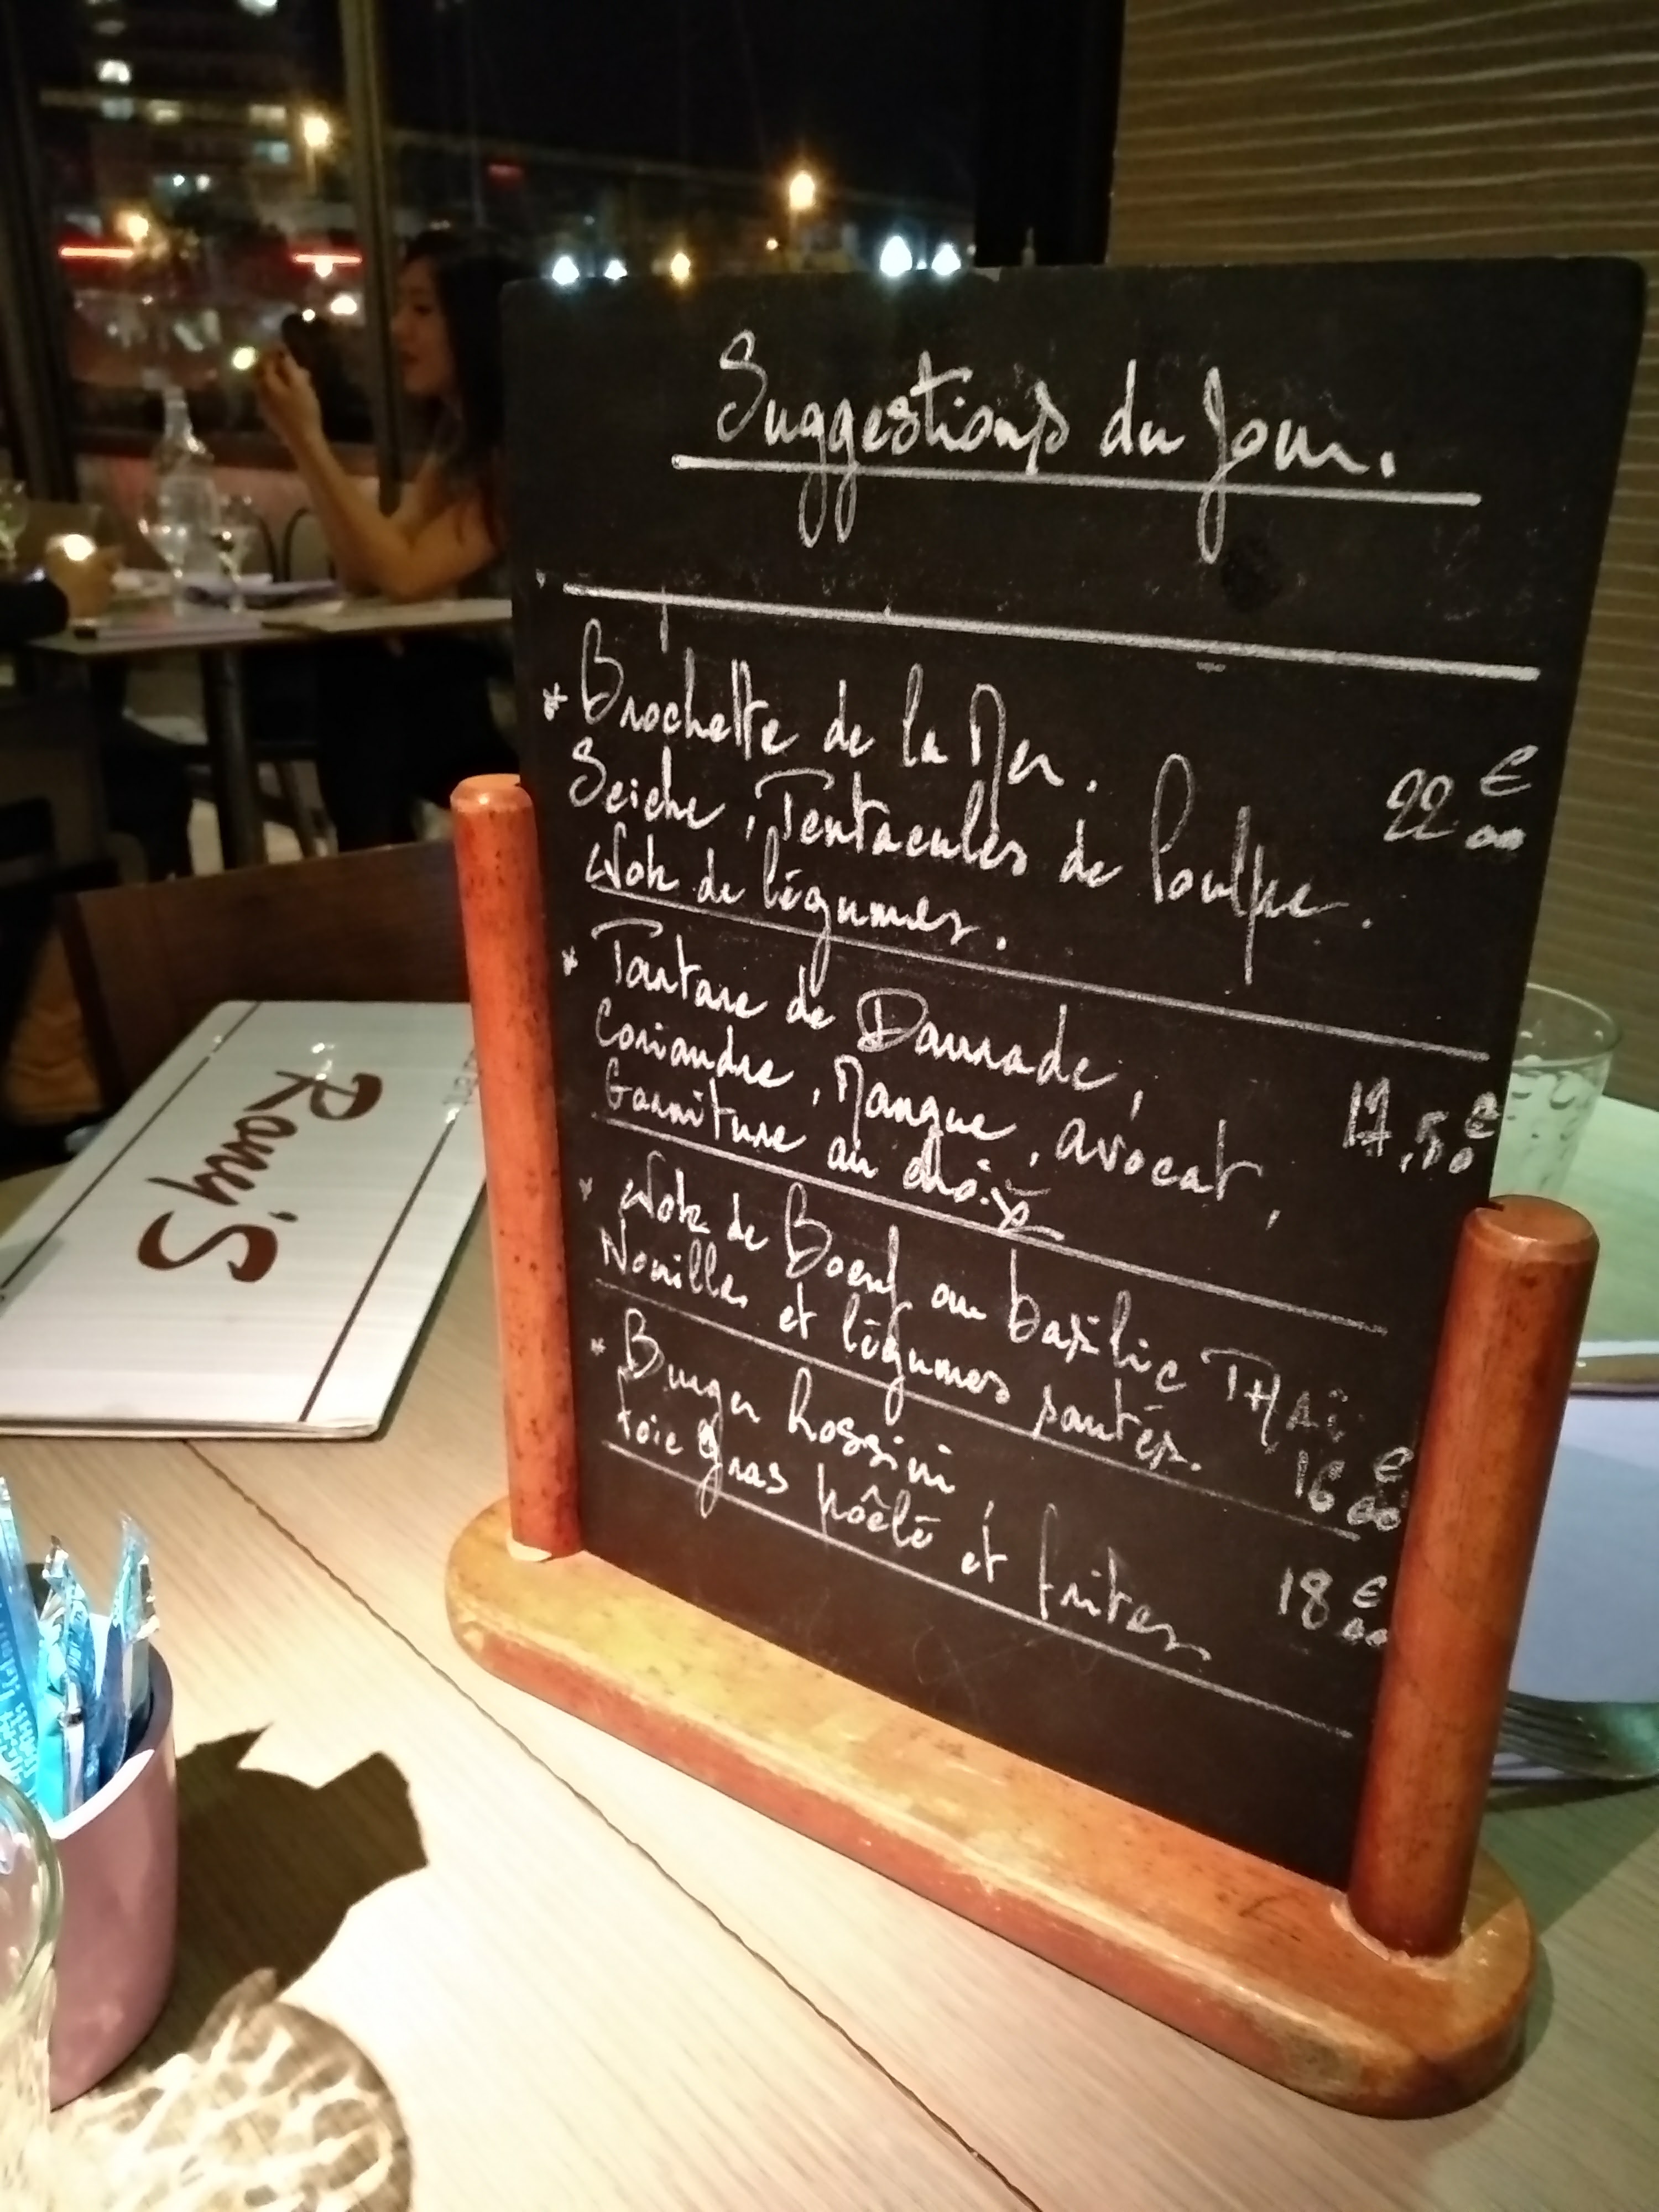 Suggestions du Jour.
* Brochette de la Mer.
Seiche, Tentacules de Poulpe.
22 €
00
Wok de légumes.
* Tartare de Daurade,
Coriandre, Mangue, avocat,
Garniture au choix
€
,50
* Wok de Boeuf au basilic THAÏ
Nouilles et légumes sautés.
16 €
00
* Burger Rossini,
foie gras poêlé et frites
18 €
00
Rany'S